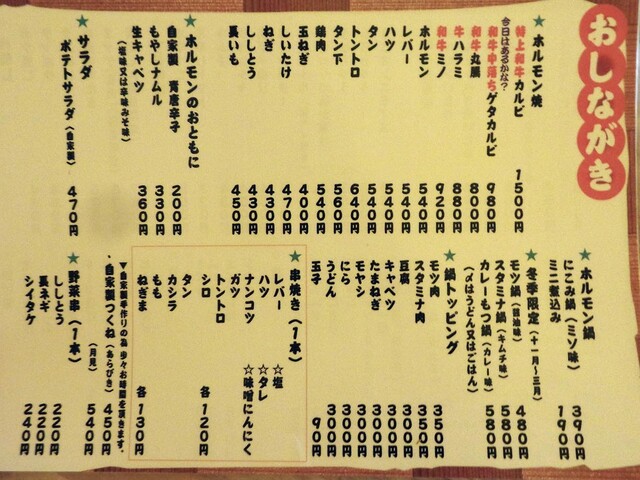 おしながき
★ホルモン焼
特上和牛カルビ 1500円
今日はあるかな？
和牛中落ちゲタカルビ 980円
和牛丸腸 800円
牛ハラミ 880円
和牛ミノ 920円
ホルモン 540円
レバー 540円
ハツ 540円
タン 540円
トントロ 640円
タン下 560円
鶏肉 540円
玉ねぎ 400円
しいたけ 470円
ねぎ 430円
ししとう 430円
長いも 450円
★ホルモンのおともに
自家製 青唐辛子 200円
もやしナムル 330円
生キャベツ 360円
（塩味又は辛味みそ味）
★サラダ
ポテトサラダ（自家製） 470円
★ホルモン鍋
にこみ鍋（ミソ味） 390円
ミニ煮込み 190円
★冬季限定（十一月〜三月）
モツ鍋（醤油味） 480円
スタミナ鍋（キムチ味） 580円
カレーもつ鍋（カレー味） 580円
（〆はうどん又はごはん）
★鍋トッピング
モツ肉 350円
スタミナ肉 350円
豆腐 300円
キャベツ 300円
たまねぎ 300円
モヤシ 300円
にら 300円
うどん 300円
玉子 90円
★串焼き（1本）
レバー ☆塩
ハツ ☆タレ
ナンコツ ☆味噌にんにく
ガツ
トントロ
シロ 各120円
タン
カシラ
もも
ねぎま 各130円
▼自家製手作りの為 少々お時間を頂きます。
・自家製つくね（あらびき） 450円
（月見） 540円
★野菜串（1本）
ししとう 220円
長ネギ 220円
シイタケ 240円